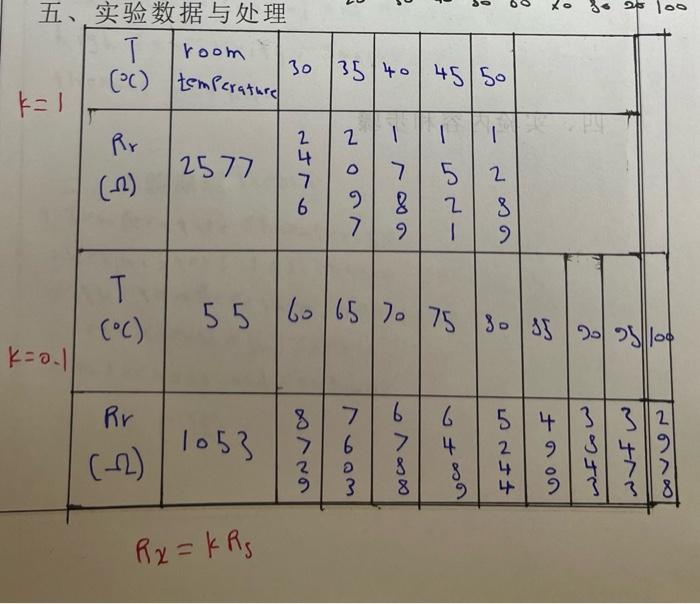 五、实验数据与处理
T (°C) room temperature 30 35 40 45 50
k=1
Rr (Ω) 2577 2476 2097 1789 1521 1289
T (°C) 55 60 65 70 75 80 85 90 95 100
k=0.1
Rr (Ω) 1053 8729 7603 6788 6489 5244 4909 3843 3473 2978
Rx = k Rs